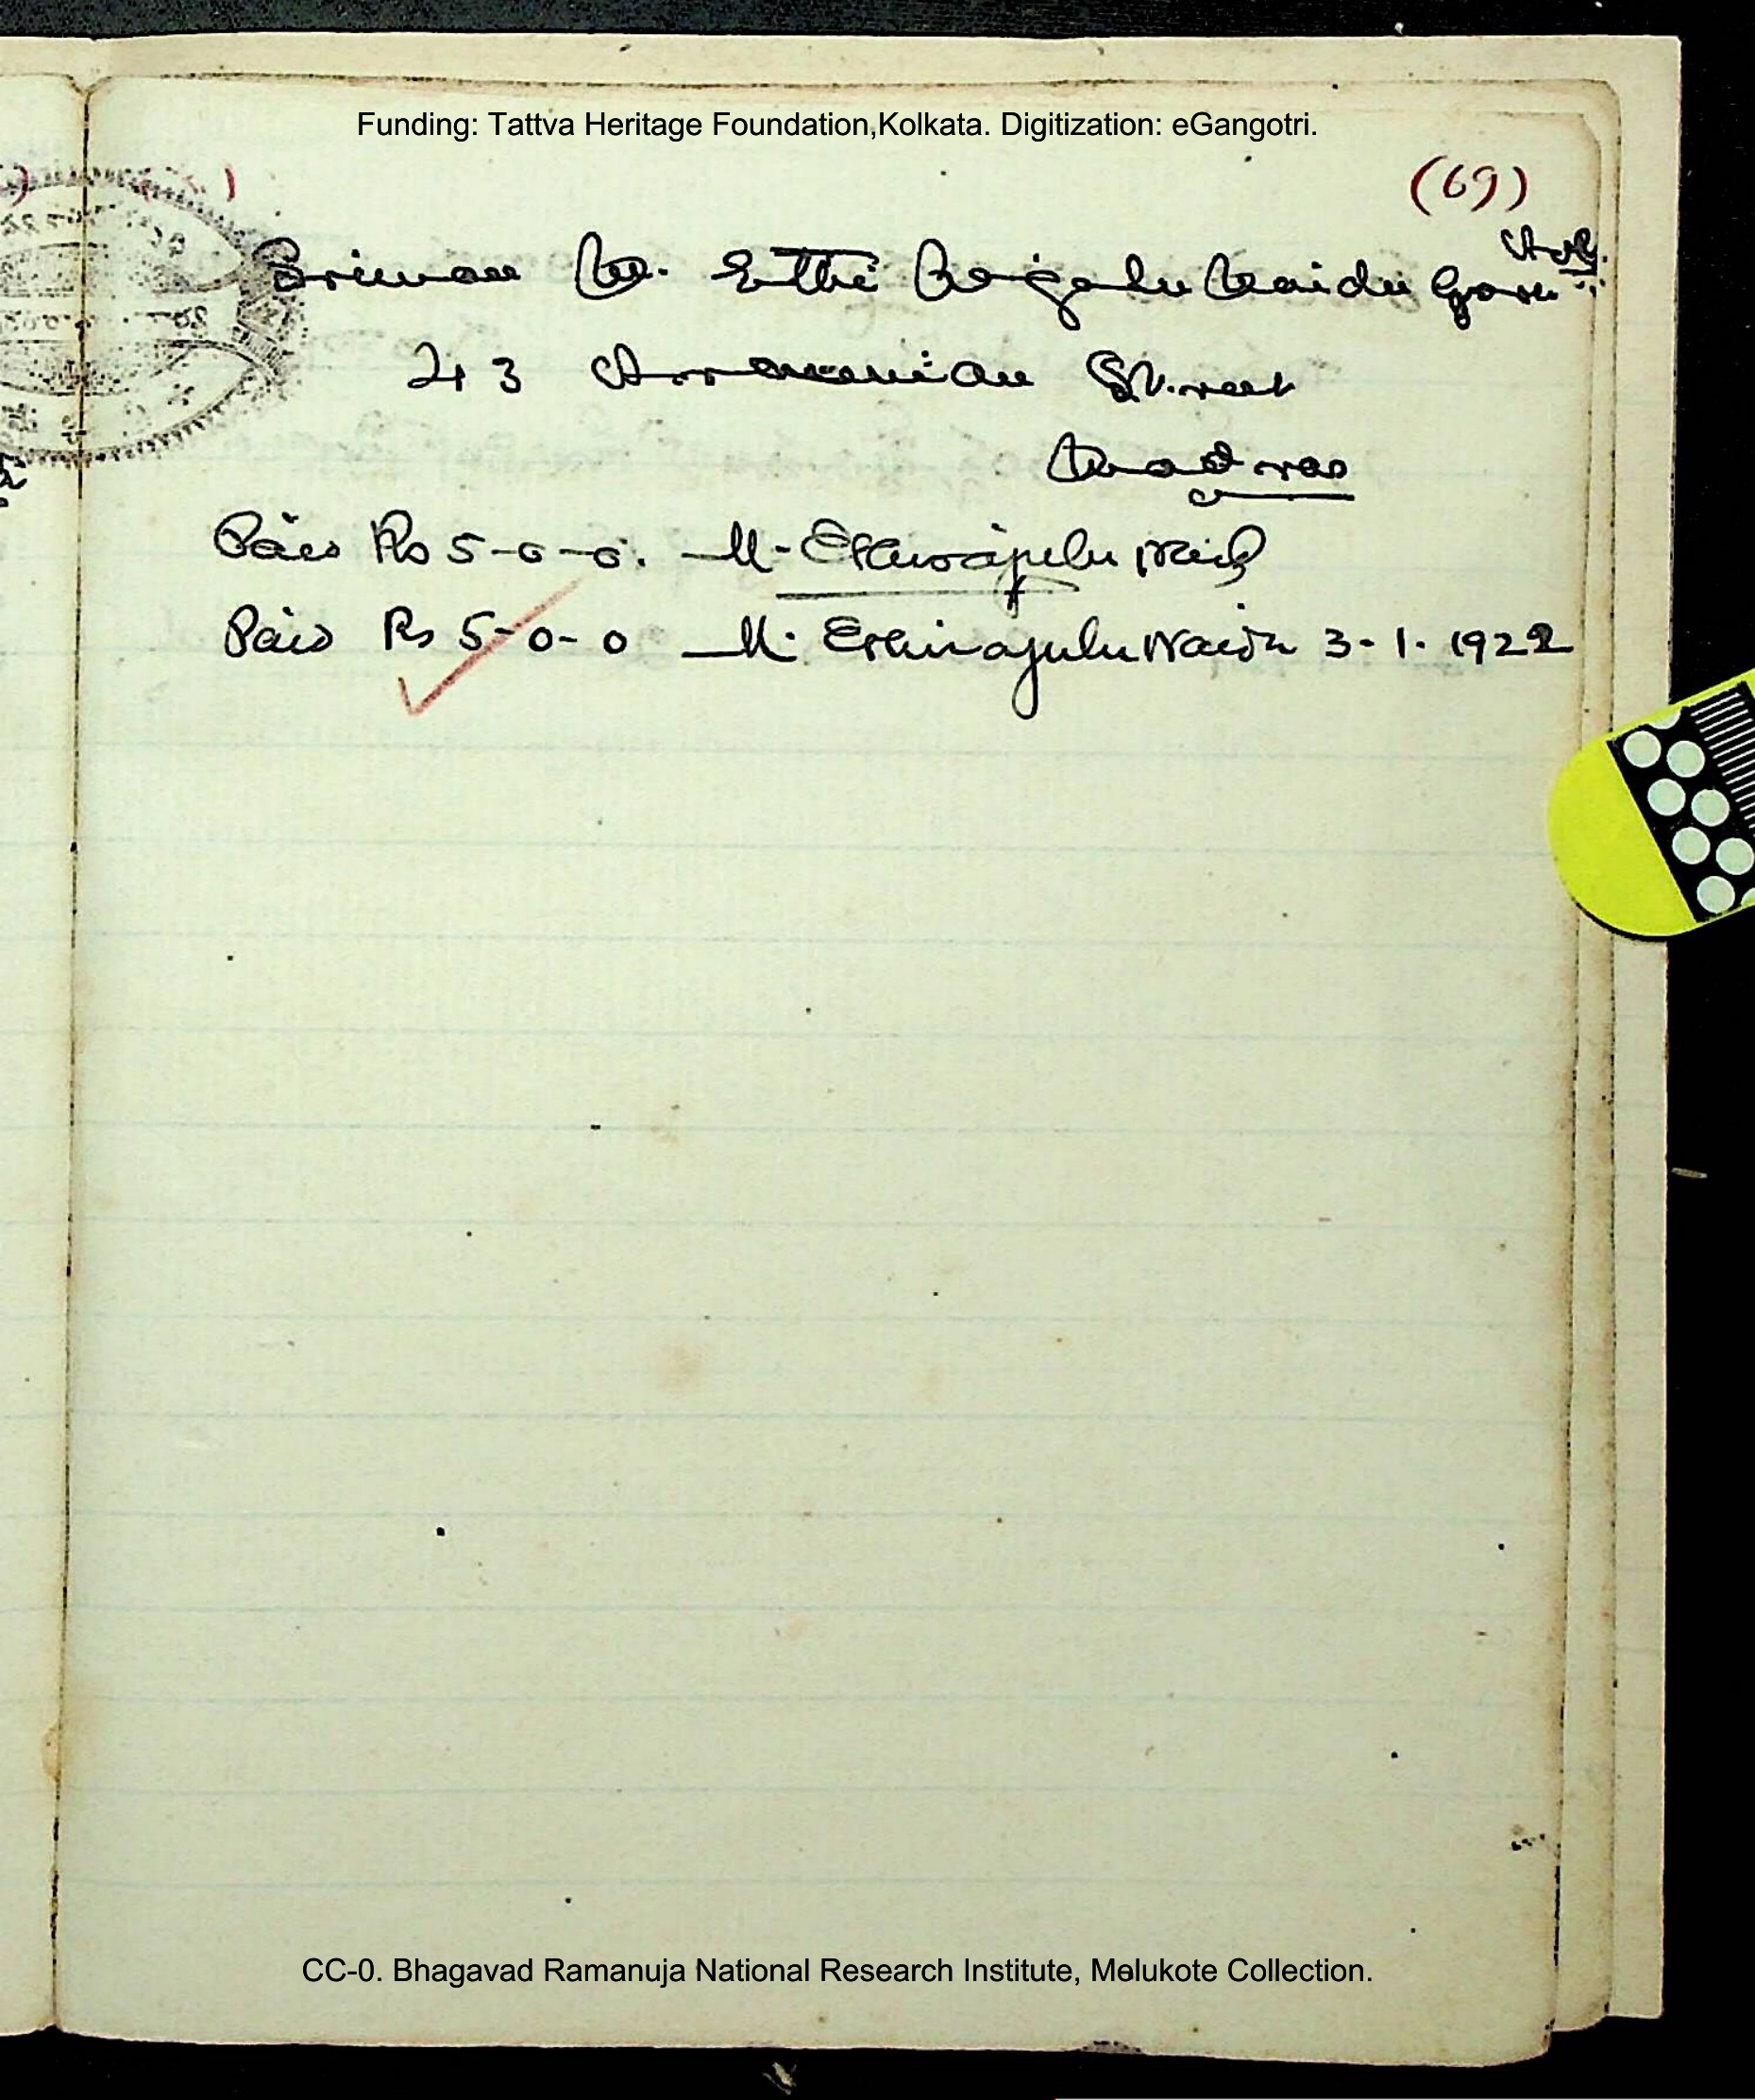 Funding: Tattva Heritage Foundation,Kolkata. Digitization: eGangotri.
(69)
Sriman M. Ethi Naidu Garu
43 Armenian Street
Madras
Paid Rs 5-0-0. M. Ethirajulu Naid
Paid Rs 5-0-0 M. Ethirajulu Naidu 3-1-1922
CC-0. Bhagavad Ramanuja National Research Institute, Melukote Collection.